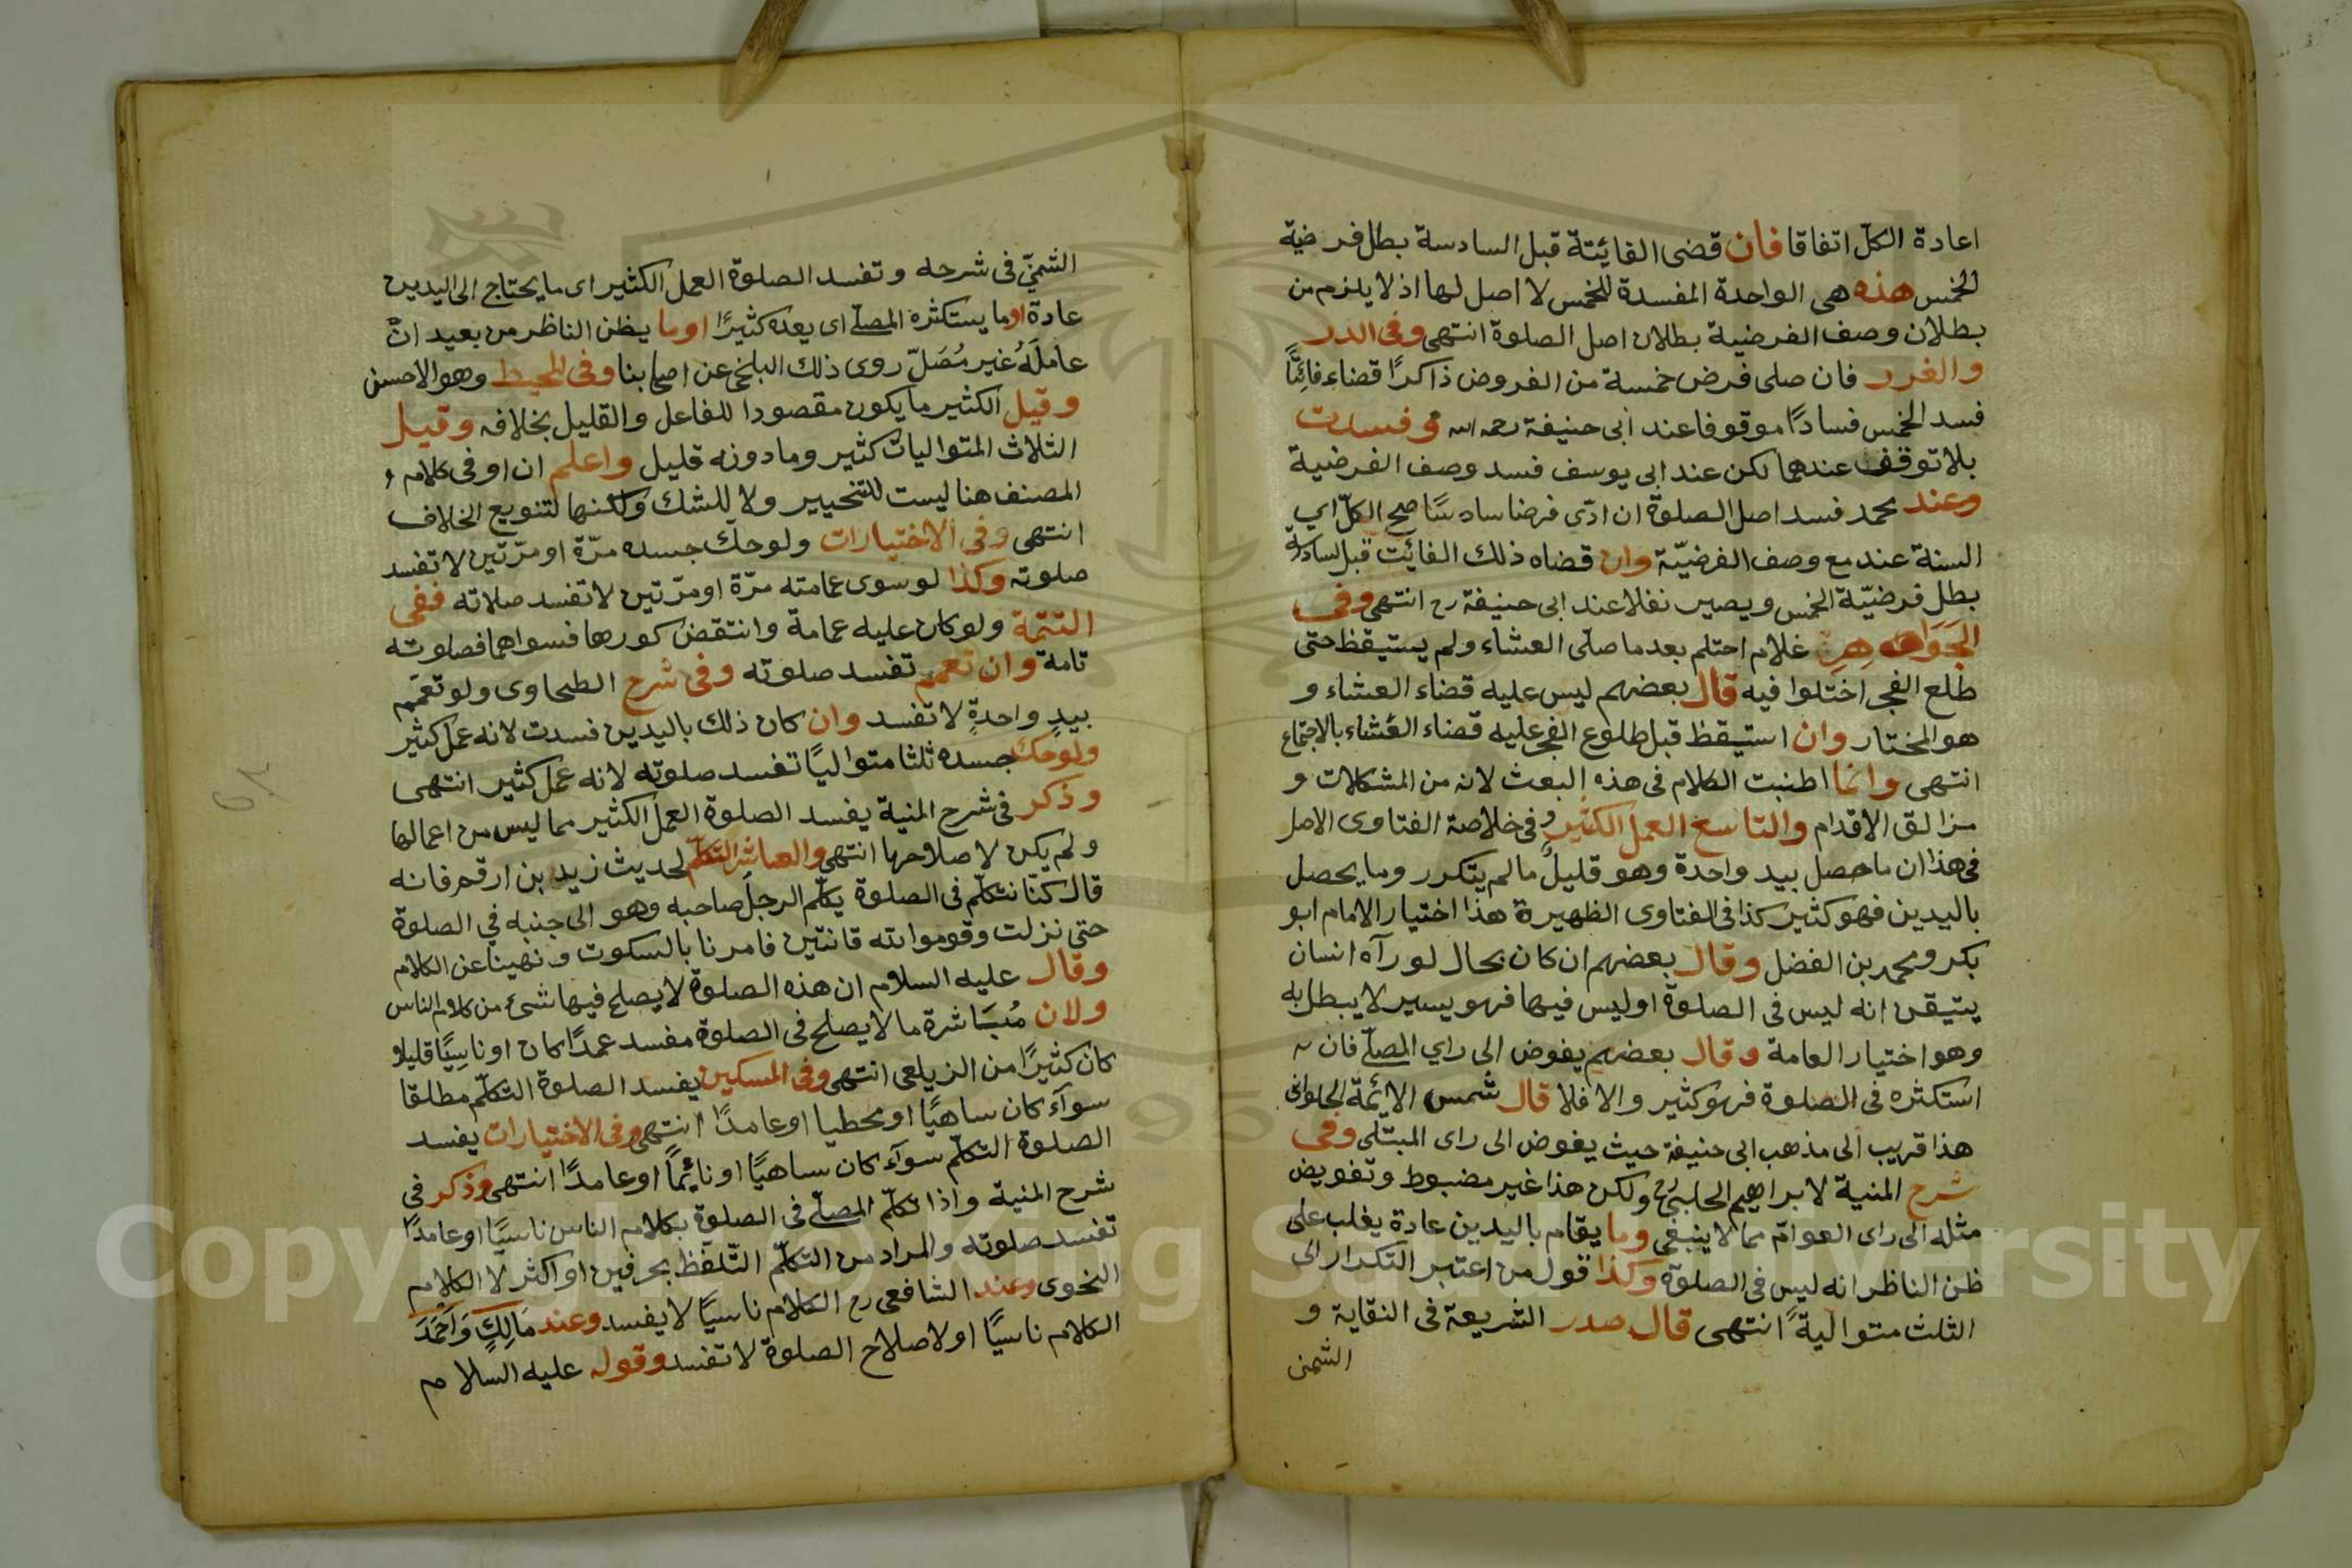 اعادة الكلّ اتفاقا فان قضى الفايئتة قبل السادسة بطل فرضية
الخمس هذه هى الواحدة المفسدة للخمس لا اصل لها اذ لا يلزم من
بطلان وصف الفرضية بطلان اصل الصلوة انتهى وفى الدرر
والغرر فان صلى فرض خمسة من الفروض ذاكرًا قضاء فائتًا
فسد الخمس فسادًا موقوفا عند ابى حنيفة رحمه الله وفسدت
بلا توقف عندهما لكن عند ابى يوسف فسد وصف الفرضية
وعند محمد فسد اصل الصلوة ان ادّى فرضا سادسًا صح الكلّ اي
الستة عند مع وصف الفرضيّة وان قضاه ذلك الفائت قبل السادسة
بطل فرضيّة الخمس ويصير نفلا عند ابى حنيفة رح انتهى وفى
الجواهر غلام احتلم بعد ما صلّى العشاء ولم يستيقظ حتى
طلع الفجر اختلوا فيه قال بعضهم ليس عليه قضاء العشاء و
هو المختار وان استيقظ قبل طلوع الفجر عليه قضاء العشاء بالاجماع
انتهى وانما اطنبت الكلام فى هذه البعث لانه من المشكلات و
مزالق الاقدام والتاسع العمل الكثير وفى خلاصة الفتاوى الاصل
فى هذا ان ما حصل بيد واحدة وهو قليلٌ ما لم يتكرر وما يحصل
باليدين فهو كثير كذا فى الفتاوى الظهيرة هذا اختيار الامام ابو
بكر ومحمد بن الفضل وقال بعضهم ان كان بحال لو رآه انسان
يتيقن انه ليس فى الصلوة او ليس فيها فهو يسير لا يبطل به
وهو اختيار العامة وقال بعضهم يفوض الى راي المصلّى فان
استكثره فى الصلوة فهو كثير والا فلا قال شمس الائمة الحلوانى
هذا قريب الى مذهب ابى حنيفة حيث يفوض الى راى المبتلى وفى
شرح المنية لابراهيم الحلبى رح ولكن هذا غير مضبوط وتفويض
مثله الى راى العوامّ مما لا ينبغى وما يقام باليدين عادة يغلب على
ظن الناظر انه ليس فى الصلوة وكذا قول من اعتبر التكرار الى
الثلث متواليةً انتهى قال صدر الشريعة فى النقاية و
الشمنى
الشمنيّ فى شرحه وتفسد الصلوة العمل الكثير اى ما يحتاج الى اليدين
عادة او ما يستكثره المصلّى اى يعده كثيرًا او ما يظن الناظر من بعيد انّ
عاملَهُ غير مُصَلّ روى ذلك البلخى عن اصحابنا وفى المحيط وهو الاحسن
وقيل الكثير ما يكون مقصودا للفاعل والقليل بخلافه وقيل
الثلاث المتواليات كثير وما دونه قليل واعلم ان او فى كلام
المصنف هنا ليست للتخيير ولا للشك ولكنها لتنويع الخلاف
انتهى وفى الاختيارات ولو حك جسده مرّة او مرّتين لا تفسد
صلوته وكذا لو سوى عمامته مرّة او مرّتين لا تفسد صلاته ففى
التتمة ولو كان عليه عمامة وانتقض كورها فسواهما فصلوته
تامة وان تعمم تفسد صلوته وفى شرح الطحاوى ولو تعمّم
بيدٍ واحدةٍ لا تفسد وان كان ذلك باليدين فسدت لانه عمل كثير
ولو حك جسده ثلثا متواليًا تفسد صلوته لانه عمل كثير انتهى
وذكر فى شرح المنية يفسد الصلوة العمل الكثير مما ليس من اعمالها
ولم يكن لاصلاحها انتهى والعاشر التكلّم لحديث زيد بن ارقم فانه
قال كنّا نتكلّم فى الصلوة يكلّم الرجل صاحبه وهو الى جنبه في الصلوة
حتى نزلت وقوموا لله قانتين فامرنا بالسكوت ونهينا عن الكلام
وقال عليه السلام ان هذه الصلوة لا يصلح فيها شئ من كلام الناس
ولان مُبَاشرة ما لا يصلح فى الصلوة مفسد عمدًا كان او ناسيًا قليلاو
كان كثيرًا من الزيلعى انتهى وفى المسكين يفسد الصلوة التكلّم مطلقا
سوآء كان ساهيًا او مخطيا او عامدًا انتهى وفى الاختيارات يفسد
الصلوة التكلّم سوآء كان ساهيًا او نائمًا او عامدًا انتهى وذكر فى
شرح المنية واذا تكلّم المصلّى فى الصلوة بكلام الناس ناسيًا او عامدًا
تفسد صلوته والمراد من التكلّم التّلفّظ بحرفين او اكثر لا الكلام
النحوى وعند الشافعى رح الكلام ناسيًا لا يفسد وعند مَالِكٍ وَاَحْمَدَ
الكلام ناسيًا او لاصلاح الصلوة لا تفسد وقوله عليه السلام
Copyright © King Saud University